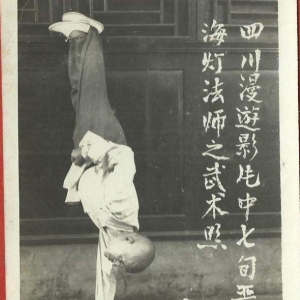 四川漫遊影片中七旬
海灯法师之武术照